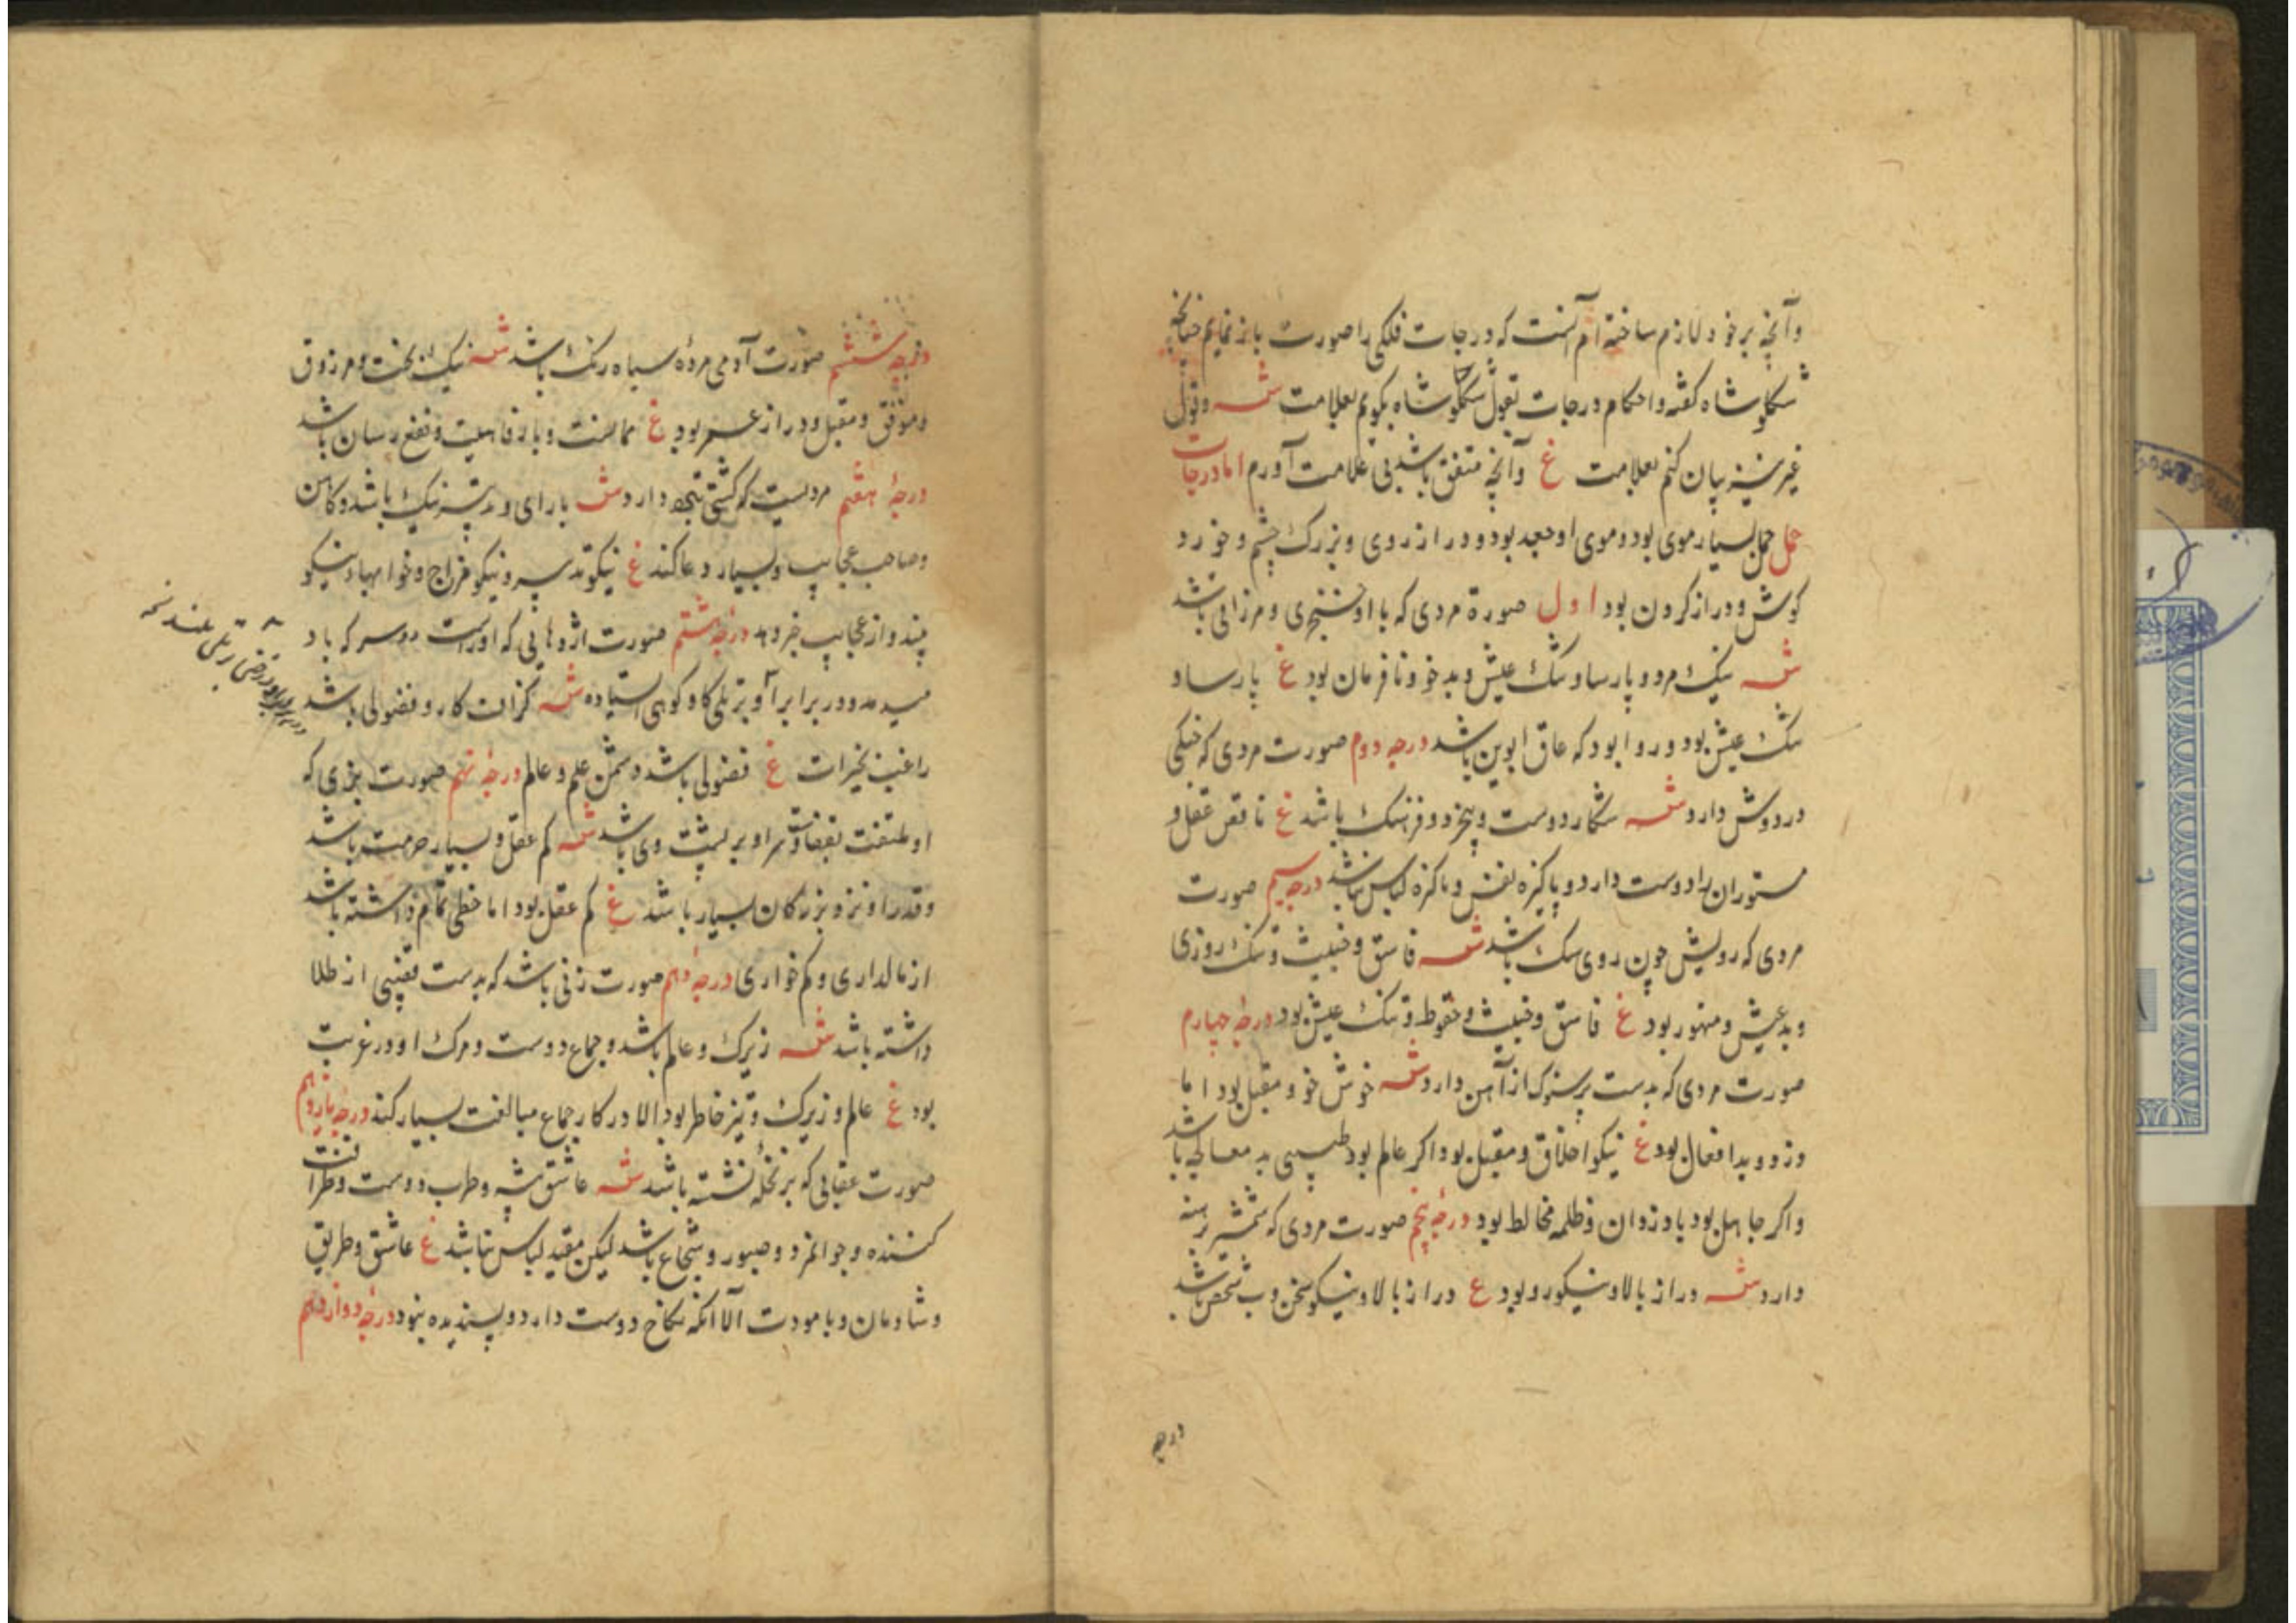 وآنچه بر خود لازم ساخته ام آنست که درجات فلکی را صورت باز نمایم چنانچه
شکلوشاه کفته واحکام درجات بقول شکلوشاه بکویم بعلامت ش وقول
غیر نیز بیان کنم بعلامت غ وآنچه متفق باشد بی علامت آورم اما درجات
حمل حمل بسیار موی بود وموی او جعد بود ودراز روی وبزرک چشم وخورد
کوش ودراز کردن بود اول صورة مردی که با او خنجری ومرزاقی باشد
ش نیک مرد وپارسا وتنک عیش وبدخو ونافرمان بود غ پارسا و
تنک عیش بود وروا بود که عاق ابوین باشد درجه دوم صورت مردی که
در دوش دارد ش شکار دوست وبیخرد وفرهنک باشد غ ناقص عقل و
ستوران را دوست دارد وپاکیزه نفس وپاکزه لباس باشد درجه سیم صورت
مردی که رویش چون روی سک باشد ش فاسق وخبیث وتنک روزی
وبدعیش ومتهور بود غ فاسق وخبیث وتنک عیش بود درجهٔ چهارم
صورت مردی که بدست آهن دارد ش خوش خو ومقبل بود اما
دزد وبد افعال بود غ نیکو اخلاق ومقبل بود اکر عالم بود طبیبی بد معالجه باشد
واکر جاهل بود با دزدان وظلمه مخالط بود درجهٔ پنجم صورت مردی که شمشیر برهنه
دارد ش دراز بالا ونیکورو بود غ دراز بالا ونیکو سخن باشد
درجه
درجهٔ ششم صورت آدمی مردهٔ سیاه رنک باشد ش نیک بخت ومرزوق
وموفق ومقبل ودراز عمر بود غ ونفع رسان باشد
درجهٔ هفتم مردیست که کشتی دارد ش با رای وتدبیر نیک باشد وکاهن
وصاحب عجایب وبسیار دعا کند غ نیکو تدبیر ونیکو مزاج وخوابهاء نیکو
بیند واز عجایب خبر دهد درجهٔ هشتم صورت اژدهایی که او راست دو سر که باد
میدمد ودر برابر او کاو کوهی استاده ش کزاف کار وفضولی باشد
راغب بخیرات غ فضولی باشد دشمن علم وعالم درجهٔ نهم صورت بزی که
او ملتفت بقفا وسر او بر پشت وی باشد ش کم عقل وبسیار حرمت باشد
وقدر او نزد بزرکان بسیار باشد غ کم عقل بود اما خطی تمام داشته باشد
از مالداری وکم خواری درجهٔ دهم صورت زنی باشد که بدست قضیبی از طلا
داشته باشد ش زیرک وعالم باشد وجماع دوست ومرک او در غربت
بود غ عالم وزیرک وتیز خاطر بود الا در کار جماع مبالغت بسیار کند درجهٔ یازدهم
صورت عقابی که بر نخلهٔ نشسته باشد ش عاشق پیشه وطرب دوست وظرافت
کننده وجوانمرد وصبور وشجاع باشد لیکن مقید لباس نباشد غ عاشق وطریق
وشادمان وبامودت الا آنکه نکاح دوست دارد وپسندیده نبود درجهٔ دوازدهم